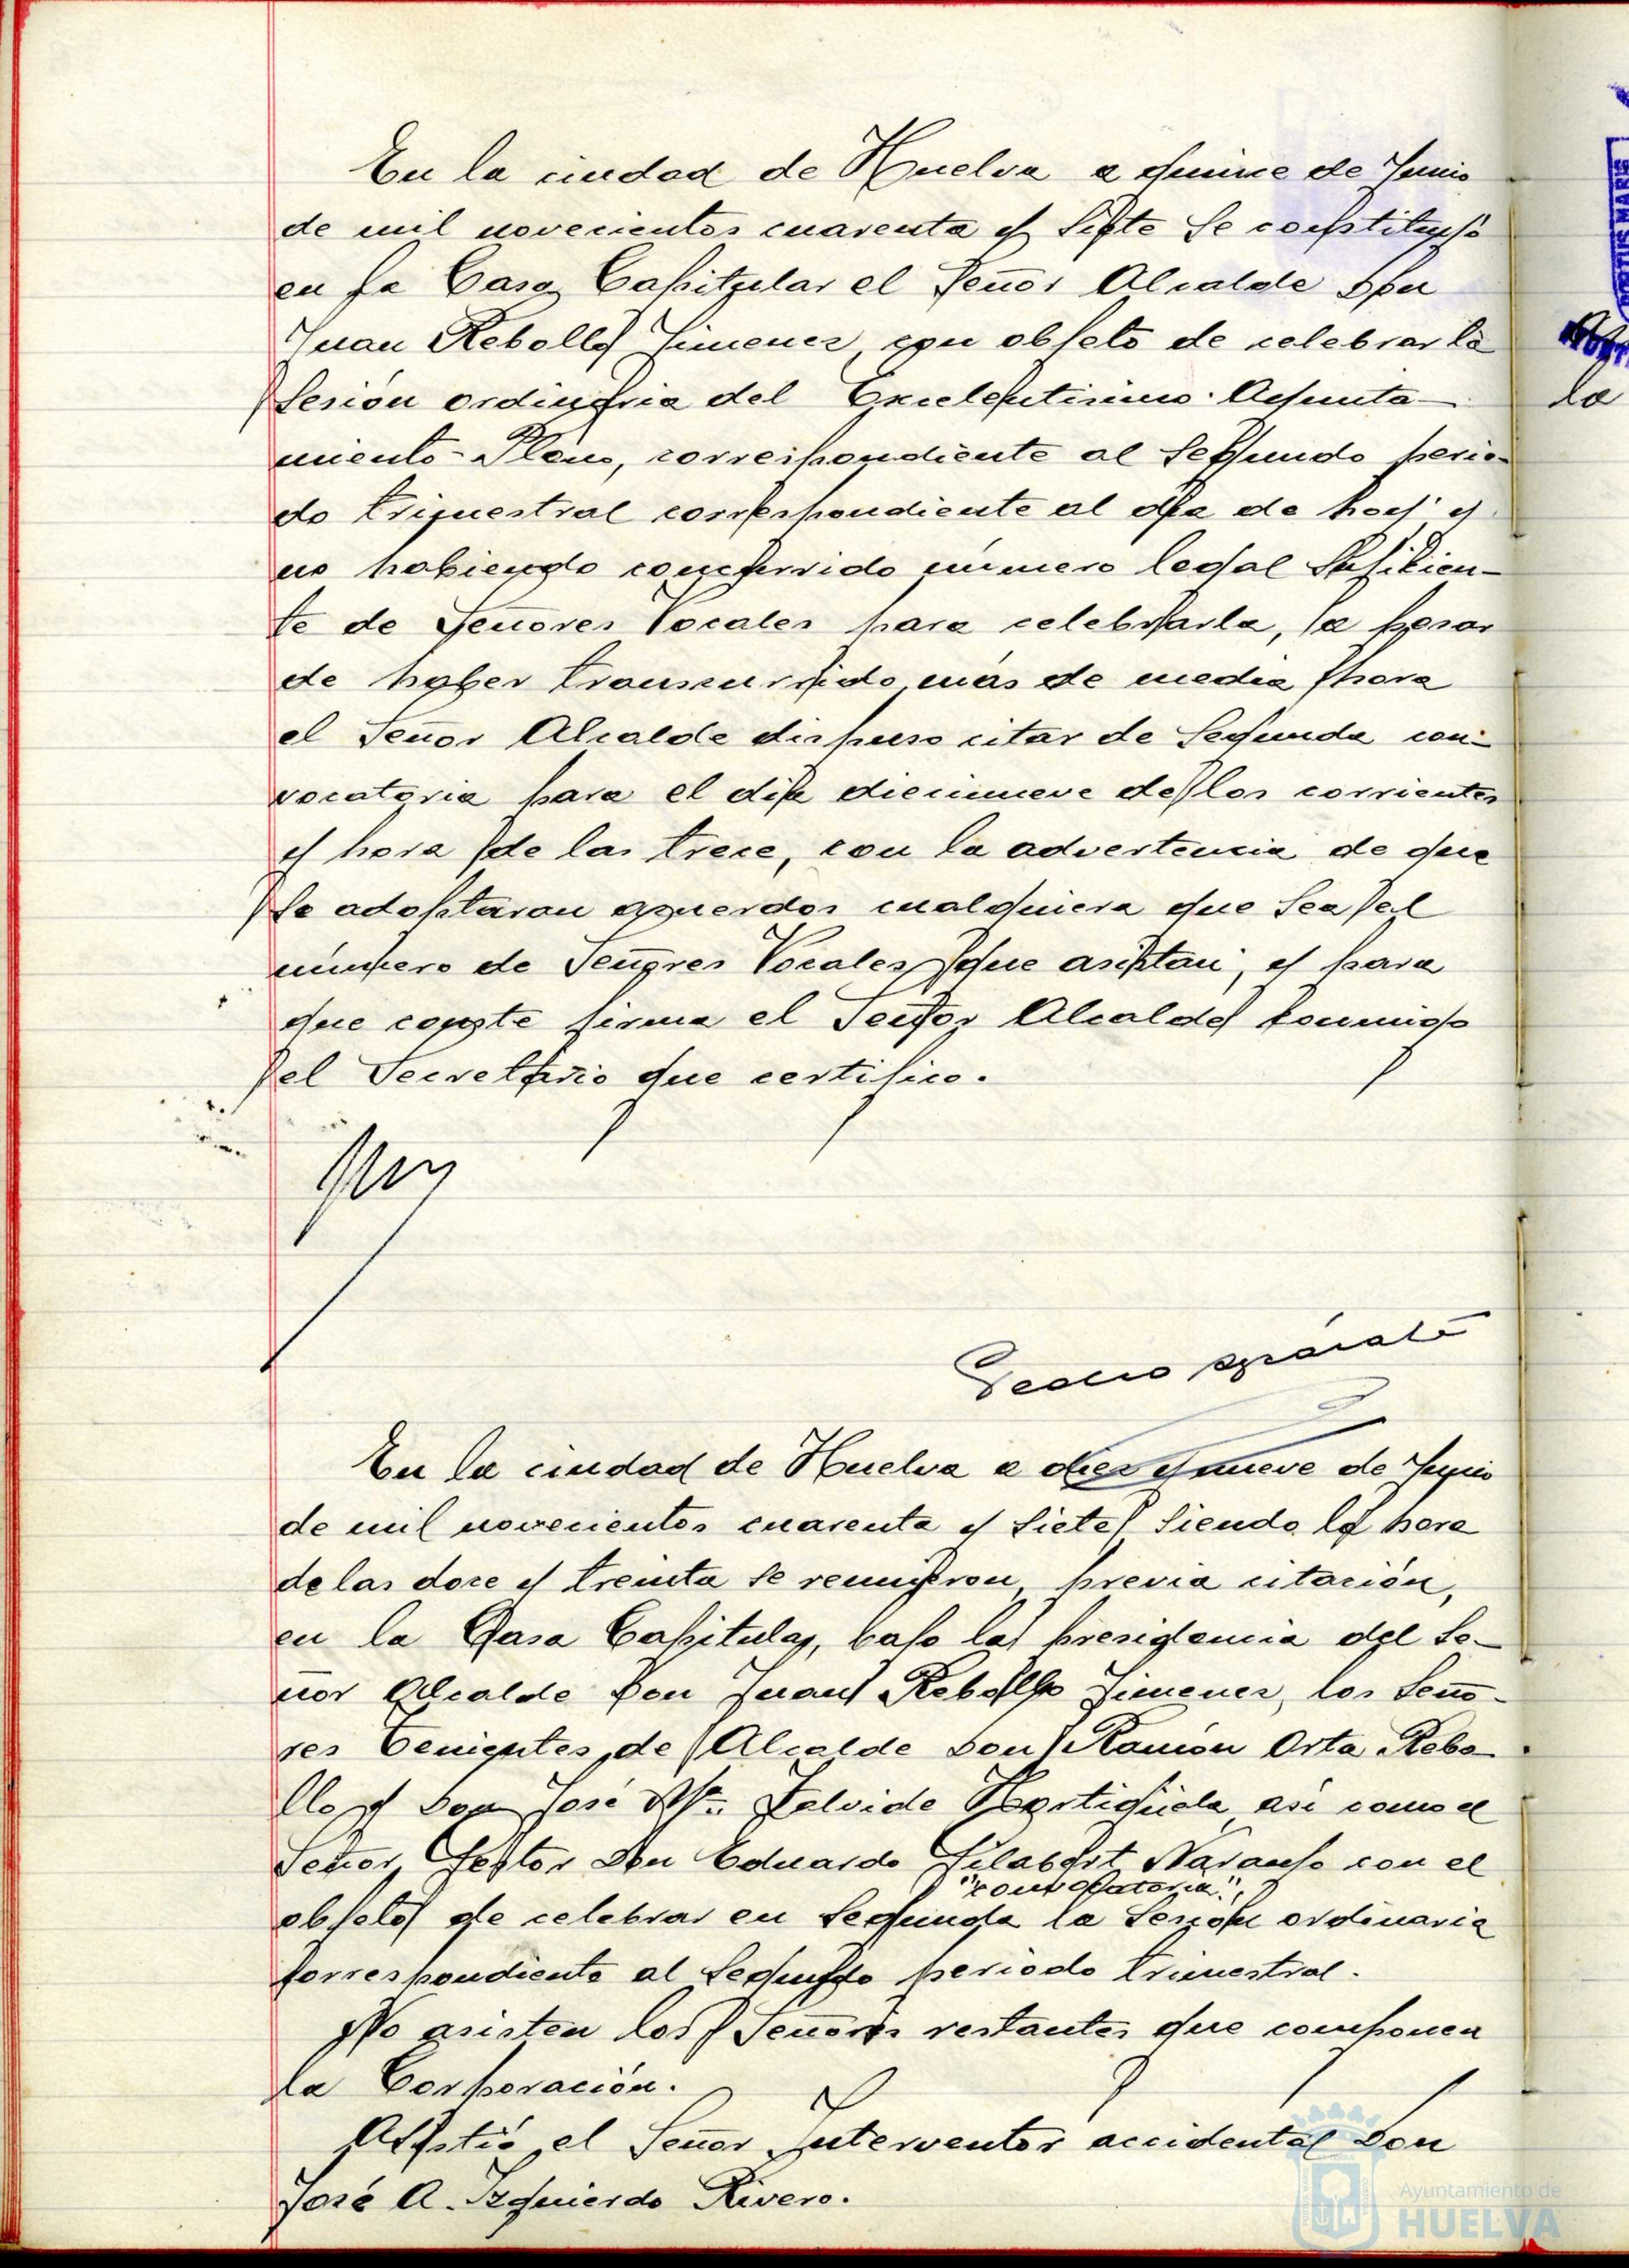 En la ciudad de Huelva a quince de Junio
de mil novecientos cuarenta y siete se constituyó
en la Casa Capitular el Señor Alcalde Don
Juan Rebollo Jimenez, con objeto de celebrar la
sesión ordinaria del Excelentisimo Ayunta-
miento-Pleno, correspondiente al segundo perio-
do trimestral correspondiente al dia de hoy y
no habiendo concurrido número legal suficien-
te de Señores Vocales para celebrarla, a pesar
de haber transcurrido más de media hora
el Señor Alcalde dispuso citar de segunda con-
vocatoria para el dia diecinueve de los corrientes
y hora de las trece, con la advertencia de que
se adoptaran acuerdos cualquiera que sea el
número de Señores Vocales que asistan, y para
que conste firma el Señor Alcalde conmigo
el Secretario que certifico.
Pedro
En la ciudad de Huelva a diez y nueve de Junio
de mil novecientos cuarenta y siete, siendo la hora
de las doce y treinta se reunieron, previa citación,
en la Casa Capitular, bajo la presidencia del Se-
ñor Alcalde Don Juan Rebollo Jimenez, los Seño-
res Tenientes de Alcalde Don Ramón Orta Rebo-
llo y Don José Mª. Zalvide Hortigüela, asi como el
Señor Gestor Don Eduardo Gilabert Naranjo con el
"convocatoria",
objeto de celebrar en segunda la sesión ordinaria
correspondiente al segundo periodo trimestral.
No asisten los Señores restantes que componen
la Corporación.
Asistió el Señor Interventor accidental Don
José A. Izquierdo Rivero.
la
PORTUS MARIS
Ayuntamiento de
HUELVA